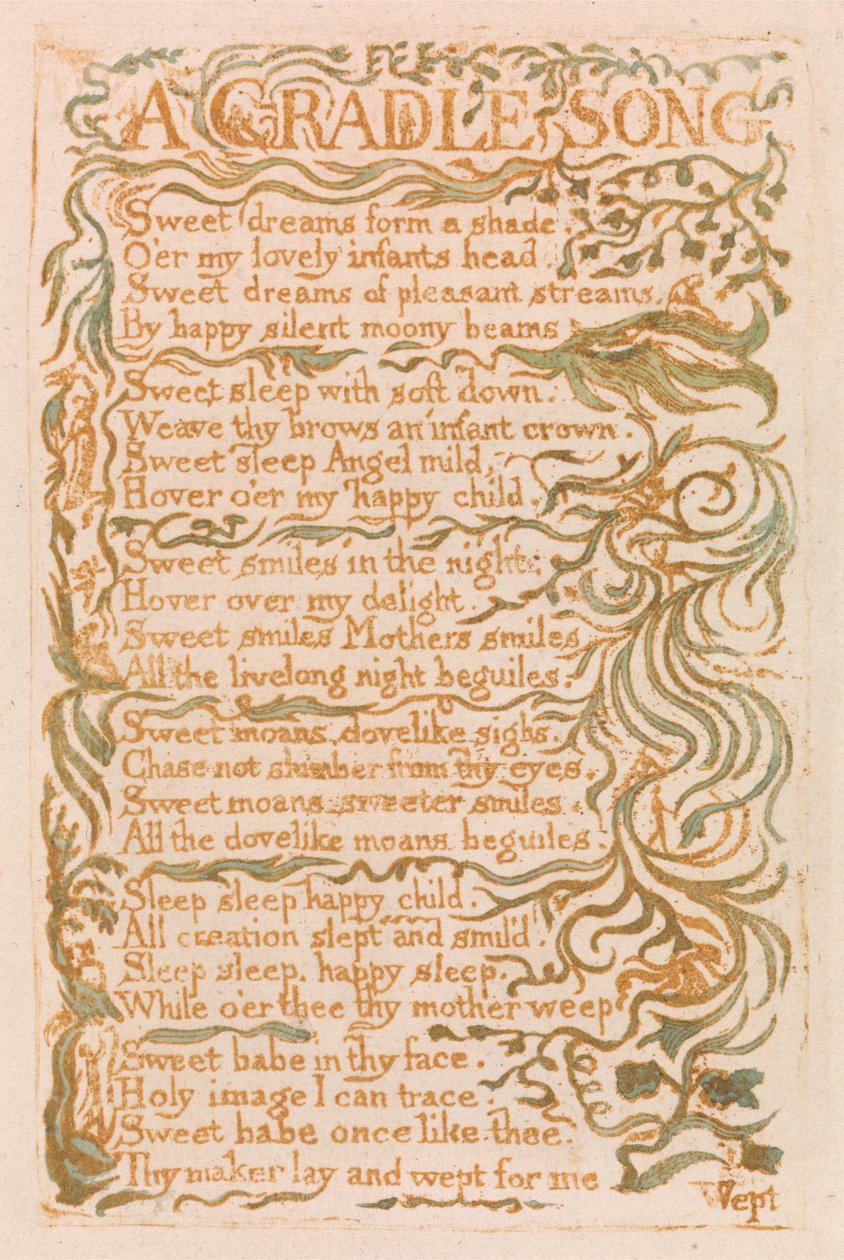 A CRADLE SONG
Sweet dreams form a shade.
O'er my lovely infants head.
Sweet dreams of pleasant streams.
By happy silent moony beams
Sweet sleep with soft down.
Weave thy brows an infant crown.
Sweet sleep Angel mild,
Hover o'er my happy child.
Sweet smiles in the night;
Hover over my delight.
Sweet smiles Mothers smiles
All the livelong night beguiles.
Sweet moans, dovelike sighs.
Chase not slumber from thy eyes.
Sweet moans, sweeter smiles.
All the dovelike moans beguiles.
Sleep sleep happy child.
All creation slept and smil'd.
Sleep sleep, happy sleep.
While o'er thee thy mother weep
Sweet babe in thy face.
Holy image I can trace.
Sweet babe once like thee.
Thy maker lay and wept for me
Wept